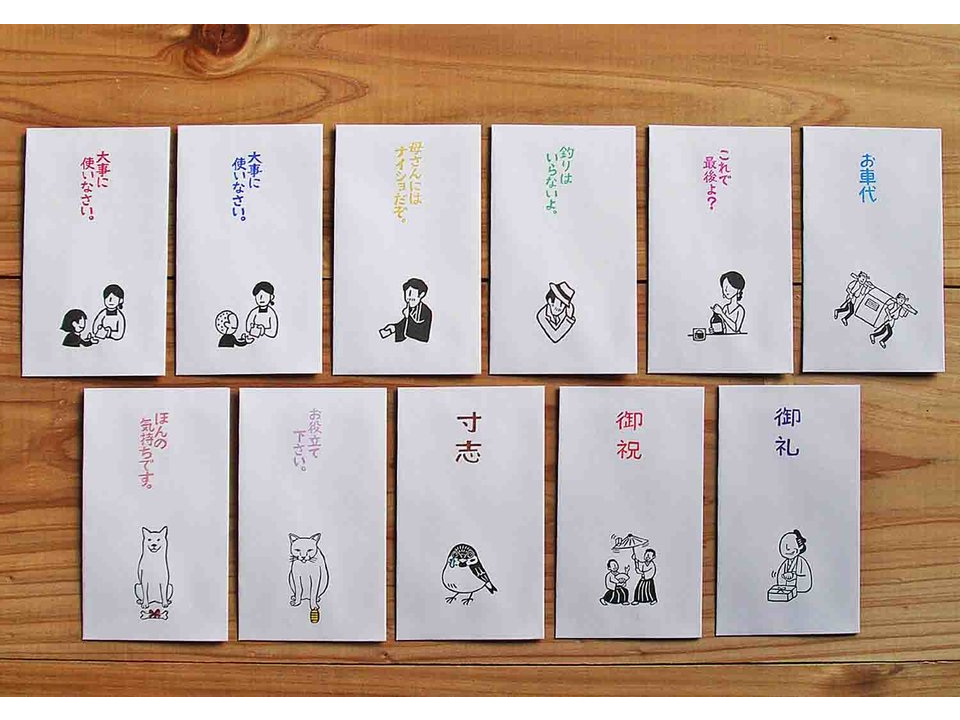 大事に
使いなさい。
大事に
使いなさい。
母さんには
ナイショだぞ。
釣りは
いらないよ。
これで
最後よ?
お車代
ほんの
気持ちです。
お役立て
下さい。
寸志
御祝
御礼